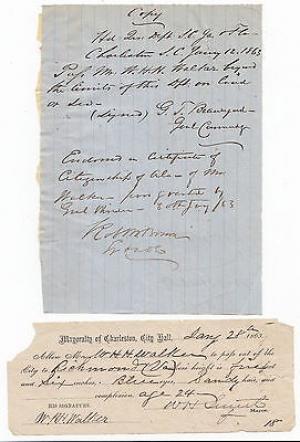 Copy
Hd Qrs Dept S.C. Ga & Fla
Charleston S.C. Jany 12. 1863
Pass Mr. W.H.H. Walker beyond
the limits of this Dept. on land
or Sea
(Signed) G. T. Beauregard
Genl Commdg
Endorsed on Certificate of
Citizenship of Ala of Mr
Walker
Genl
Mayoralty of Charleston, City Hall, Jany 28th 1863
Allow Mr W H H Walker to pass out of the
City to Richmond Va his height is five feet
and Six inches, Blue eyes, Sandy hair, and
complexion age 24
HIS SIGNATURE, Mayor.
W. H. H. Walker 18